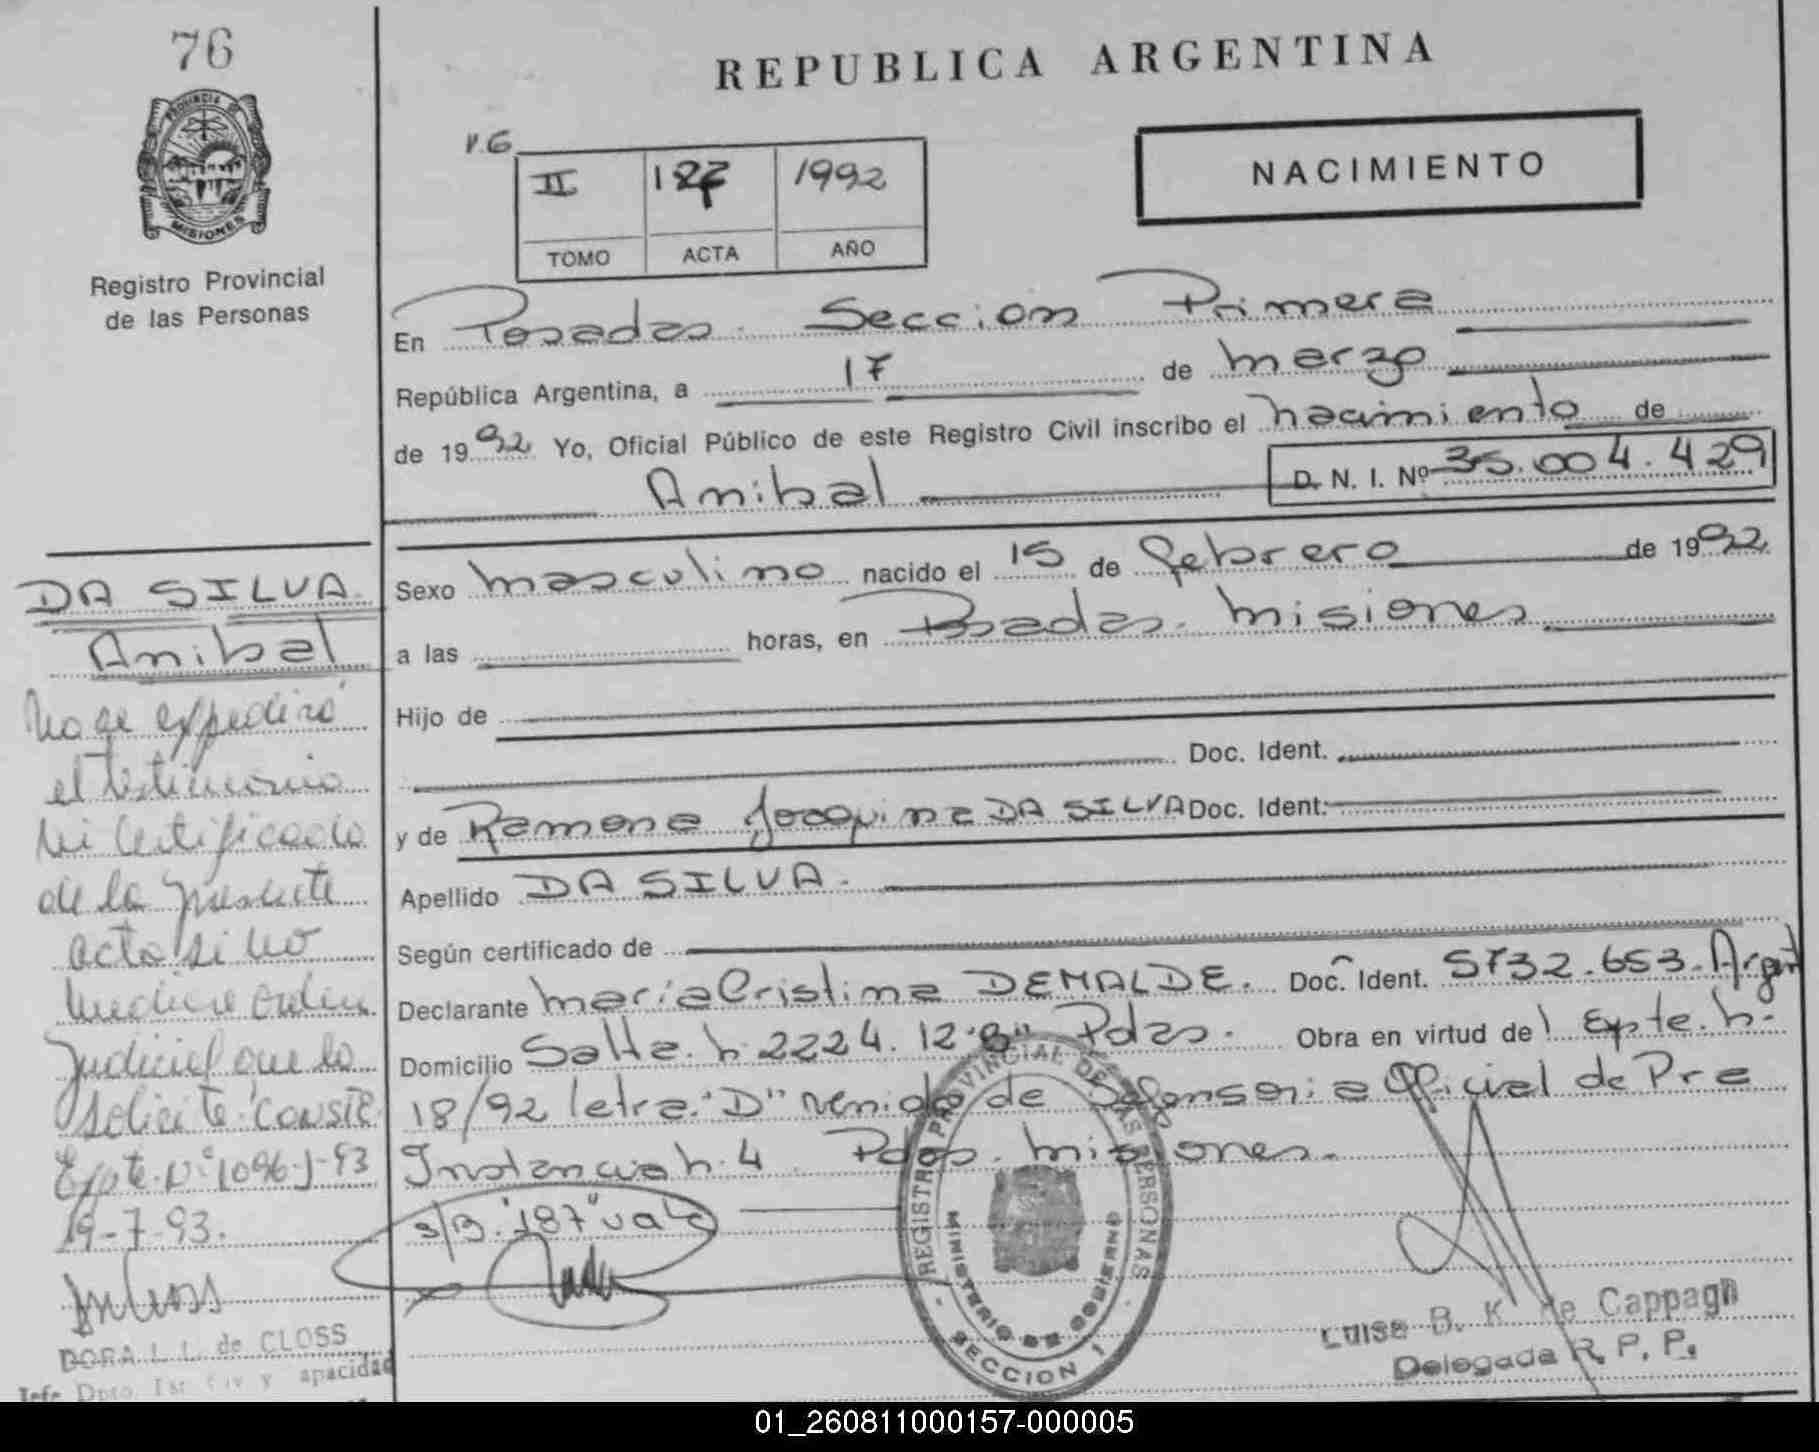 76
PROVINCIA DE
MISIONES
Registro Provincial
de las Personas
REPUBLICA ARGENTINA
NACIMIENTO
II 187 1992
TOMO ACTA AÑO
En Posadas. Sección Primera
República Argentina, a 17 de marzo
de 1992 Yo, Oficial Público de este Registro Civil inscribo el nacimiento de
Anibal D. N. I. Nº 35.004.429
Sexo masculino nacido el 15 de febrero de 1992
a las horas, en Posadas. misiones
Hijo de
Doc. Ident.
y de Ramona Joaquina DA SILVA Doc. Ident:
Apellido DA SILVA.
Según certificado de
Declarante María Cristina DEMALDE. Doc. Ident. 5732.653. Argent
Domicilio Salta. n. 2224. 12 "B" Pdas. Obra en virtud del Expte. n.
18/92 letra "D" venido de Defensoria Oficial de Pra
Instancia n. 4 Pdas. misiones.
s/B. "187" vale
DA SILVA
Anibal
No se expedirá
el testimonio
ni certificado
de la presente
acta si no
mediare orden
judicial que lo
solicite. Conste
Expte. Nº 1096-J-93
19-7-93.
DORA L. L. de CLOSS
REGISTRO PROVINCIAL DE LAS PERSONAS
MINISTERIO DE GOBIERNO
SECCION 1
Luisa B. K de Cappagli
Delegada R. P. P.
01_260811000157-000005